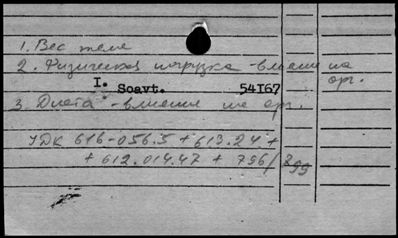 1. Вес тела
2. Физическая нагрузка - влияние на
орг.
I. Soavt. 54I67
3. Диета - влияние на орг.
УДК 616-056.5 + 613.24 +
+ 612.014.47 + 796/899